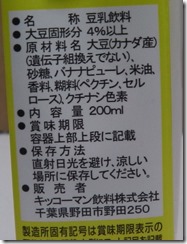 ●名　称　豆乳飲料
●大豆固形分　4%以上
●原材料名　大豆(カナダ産)
(遺伝子組換えでない)、
砂糖、バナナピューレ、米油、
香料、糊料(ペクチン、セル
ロース)、クチナシ色素
●内容量　200ml
●賞味期限
容器上部上段に記載
●保存方法
直射日光を避け、涼しい
場所に保存してください。
●販売者
キッコーマン飲料株式会社
千葉県野田市野田250
製造所固有記号は賞味期限表示の